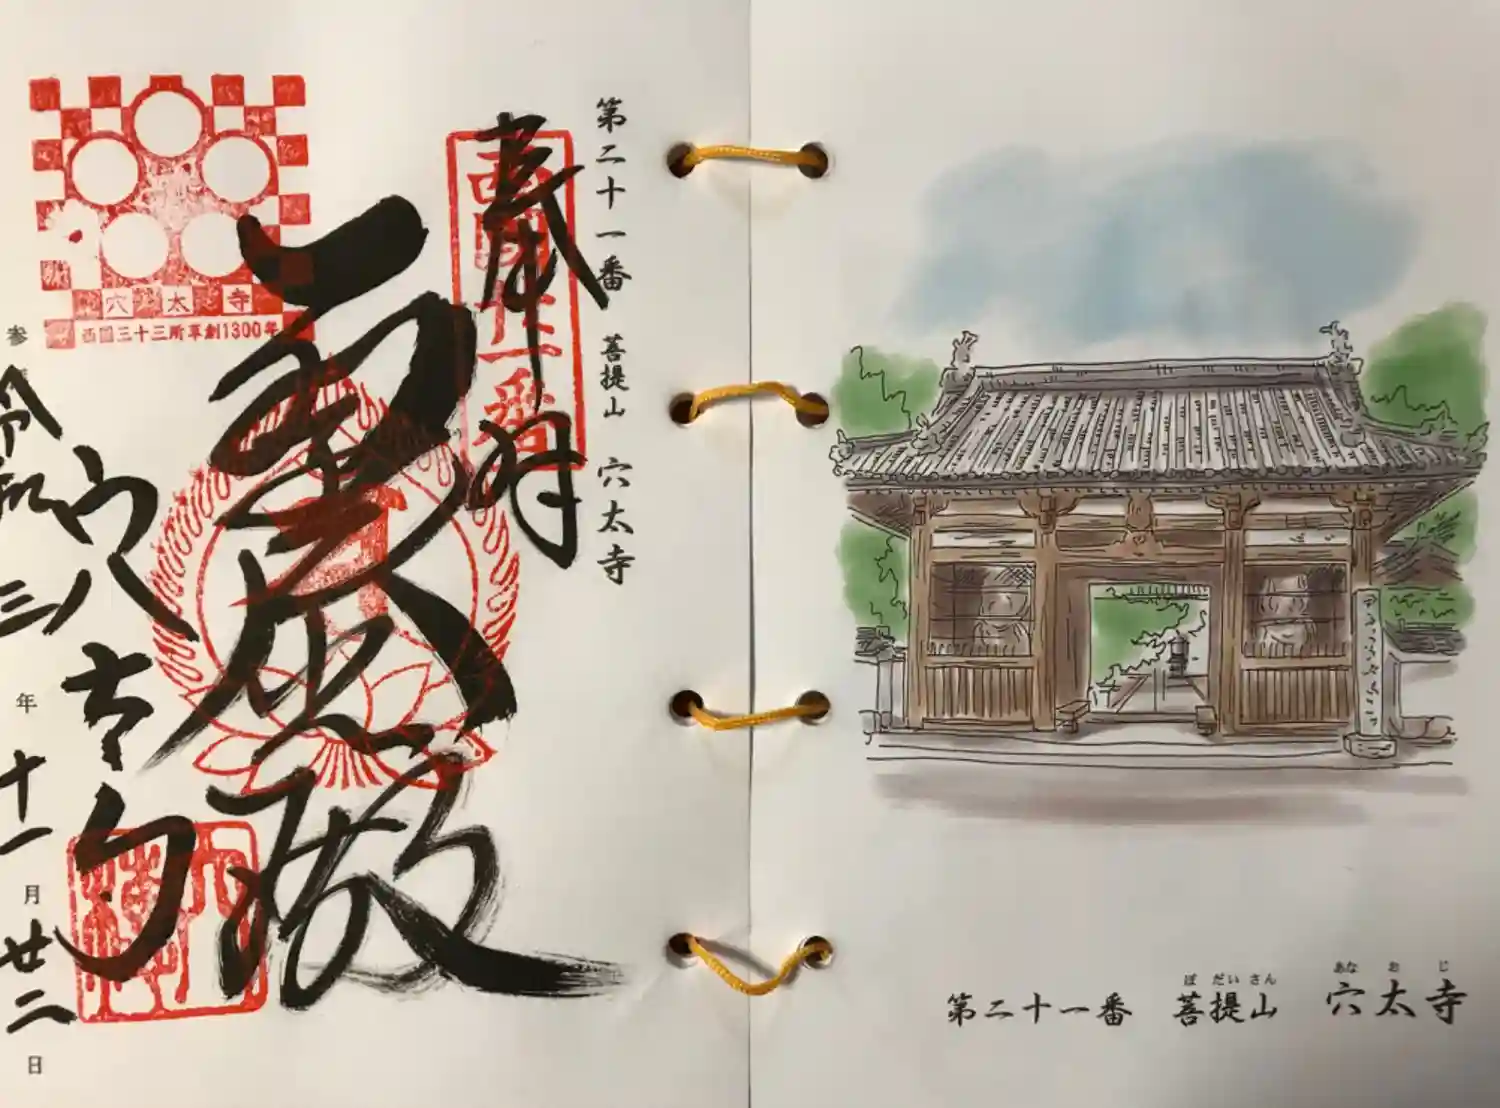 第二十一番 菩提山 穴太寺
奉拝
西國廿一番
穴太寺
西国三十三所草創1300年
穴太寺
令和三年十一月廿二日
第二十一番 菩提山 穴太寺
ぼ だい さん あな お じ